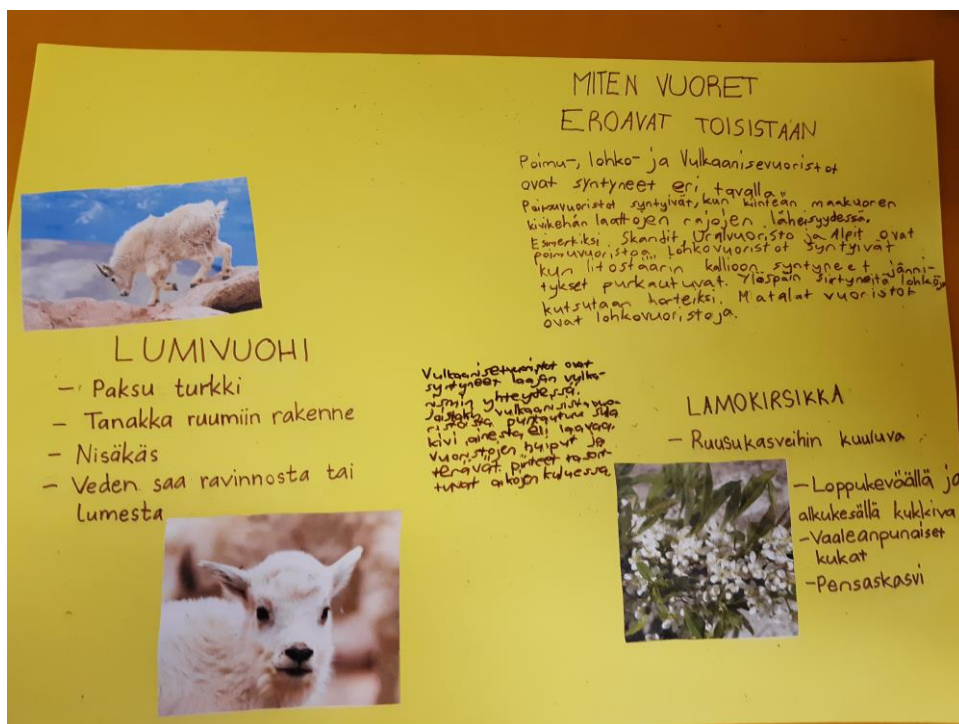 MITEN VUORET
EROAVAT TOISISTAAN
Poimu-, lohko- ja Vulkaanisevuoristot
ovat syntyneet eri tavalla.
Poimuvuoristot syntyivät, kun kiinteän maakuoren
kivikehän laattojen rajojen läheisyydessä.
Esmerkiksi Skandit, Uralvuoristo ja Alpit ovat
poimuvuoristoa. Lohkovuoristot syntyivät
kun litosfäärin kallioon syntyneet jänni-
tykset purkautuvat. Ylöspäin siirtyneitä lohkoja
kutsutaan horteiksi. Matalat vuoristot
ovat lohkovuoristoja.
LUMIVUOHI
- Paksu turkki
- Tanakka ruumiin rakenne
- Nisäkäs
- Veden saa ravinnosta tai
lumesta
Vulkaanisetvuoristot ovat
syntyneet laajan vulka-
nismin yhteydessä.
Joistakin vulkaanisistavuo-
ristoista purkautuu sula
kivi ainesta eli laavaa.
Vuoristojen huiput ja
terävät piirteet tasoit-
tuvat aikojen kuluessa
LAMOKIRSIKKA
- Ruusukasveihin kuuluva
- Loppukeväällä ja
alkukesällä kukkiva
- Vaaleanpunaiset
kukat
- Pensaskasvi